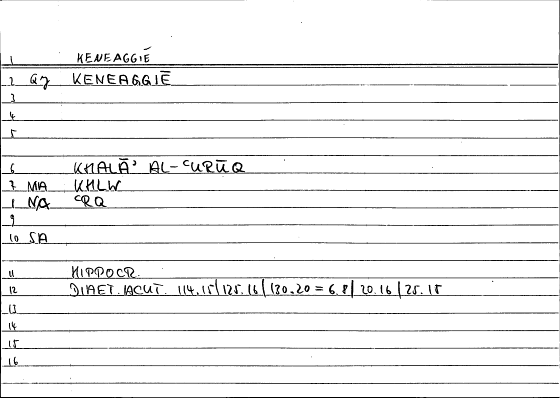 1 KENEAGGIĒ
2 GJ KENEAGGIĒ
3
4
5
6 KHALĀʾ AL-ʿURŪQ
7 MA KHLW
8 NA ʿRQ
9
10 SA
11 HIPPOCR.
12 DIAET. ACUT. 114.15|125.16|130.20 = 6.8|20.16|25.18
13
14
15
16